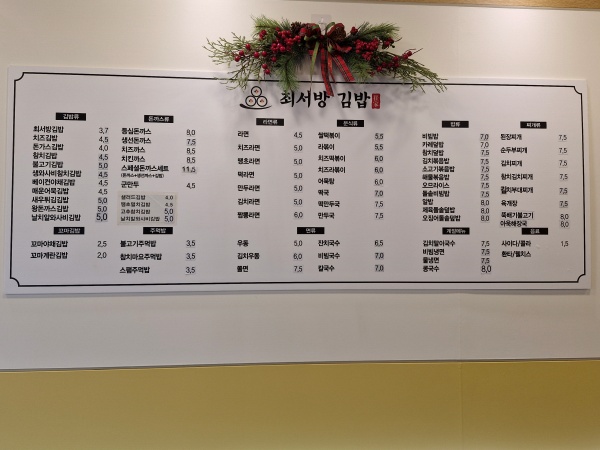 최서방 김밥
김밥류
최서방김밥 3,7
치즈김밥 4,5
돈가스김밥 4,0
참치김밥 4,5
불고기김밥 5,0
생와사비참치김밥 4,5
베이컨야채김밥 4,5
매운어묵김밥 4,5
새우튀김김밥 5,0
왕돈까스김밥 5,0
날치알와사비김밥 5,0
돈까스류
등심돈까스 8,0
생선돈까스 7,5
치즈까스 8,5
치킨까스 8,5
스페셜돈까스세트 11,5
군만두 4,5
샐러드김밥 4,5
땡초참치김밥 4,5
고추참치김밥 5,0
날치알와사비김밥 5,0
라면류
라면 4,5
치즈라면 5,0
땡초라면 5,0
떡라면 5,0
만두라면 5,0
김치라면 5,0
짬뽕라면 6,0
분식류
쌀떡볶이 5,5
라볶이 5,5
치즈떡볶이 6,0
치즈라볶이 6,0
어묵탕 6,0
떡국 7,0
떡만두국 7,5
만두국 7,5
밥류
비빔밥 7,0
카레덮밥 7,0
참치덮밥 7,5
김치볶음밥 7,5
소고기볶음밥 7,5
해물볶음밥 7,5
오므라이스 7,5
돌솥비빔밥 7,5
알밥 8,0
제육돌솥덮밥 8,0
오징어돌솥덮밥 8,0
찌개류
된장찌개 7,5
순두부찌개 7,5
김치찌개 7,5
참치김치찌개 7,5
김치부대찌개 7,5
육개장 7,5
뚝배기불고기 8,0
아욱해장국 8,0
꼬마김밥
꼬마야채김밥 2,5
꼬마계란김밥 2,0
주먹밥
불고기주먹밥 3,5
참치마요주먹밥 3,5
스팸주먹밥 3,5
면류
우동 5,0
김치우동 6,0
쫄면 7,5
잔치국수 6,5
비빔국수 7,0
칼국수 7,0
계절메뉴
김치말이국수 7,5
비빔냉면 7,5
물냉면 7,5
콩국수 8,0
음료
사이다/콜라 1,5
환타/웰치스